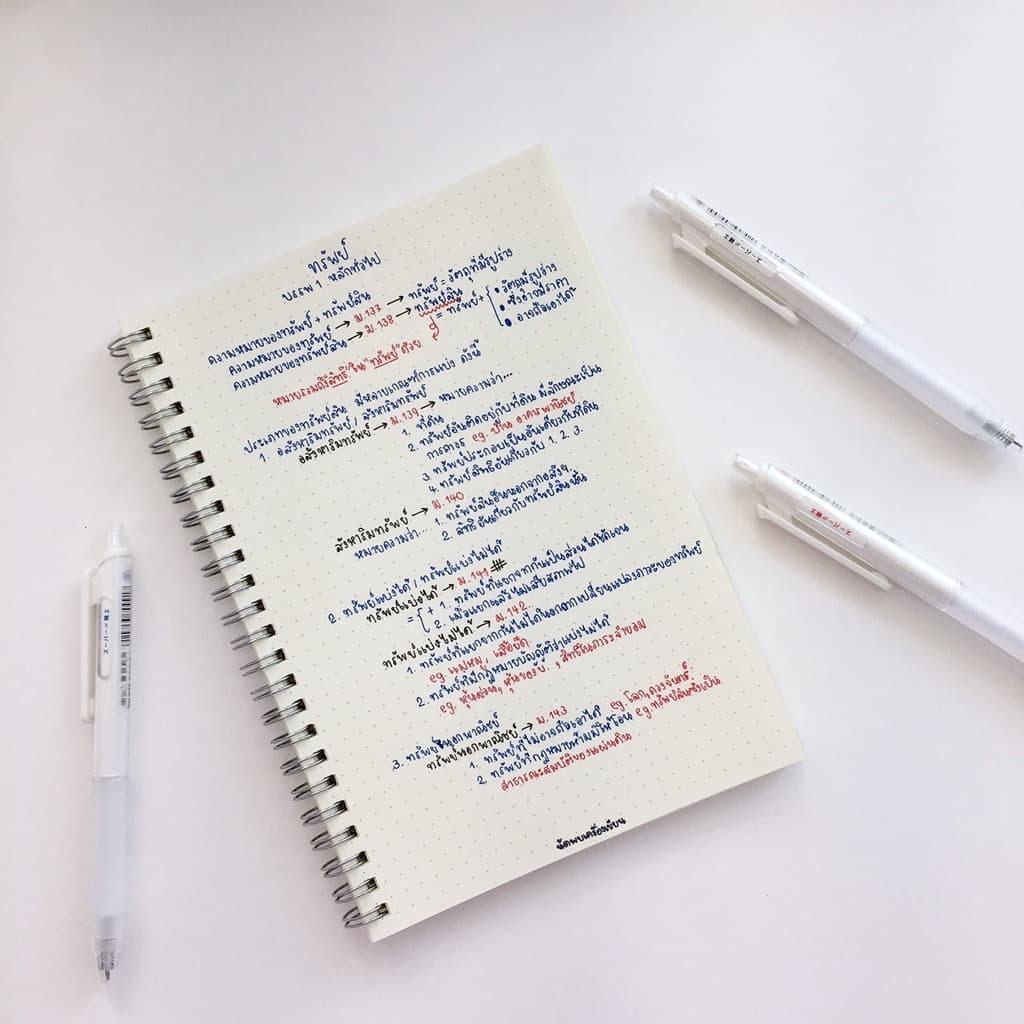 ทรัพย์
บรรพ 1 หลักทั่วไป
ความหมายของทรัพย์ + ทรัพย์สิน
ความหมายของทรัพย์ → ม.137 → ทรัพย์ = วัตถุที่มีรูปร่าง
ความหมายของทรัพย์สิน → ม.138 → ทรัพย์สิน = ทรัพย์ + { • วัตถุมีรูปร่าง
• ซึ่งอาจมีราคา
• อาจถือเอาได้
หมายรวมถึง "สิทธิ" ใน "ทรัพย์" ด้วย
ประเภทของทรัพย์สิน มีหลายเกณฑ์การแบ่ง ดังนี้
1. อสังหาริมทรัพย์ / สังหาริมทรัพย์
อสังหาริมทรัพย์ → ม.139 → หมายความว่า...
1. ที่ดิน
2. ทรัพย์อันติดอยู่กับที่ดิน มีลักษณะเป็น
การถาวร eg. บ้าน อาคารพาณิชย์
3. ทรัพย์ประกอบเป็นอันเดียวกับที่ดิน
4. ทรัพยสิทธิอันเกี่ยวกับ 1. 2. 3.
สังหาริมทรัพย์ → ม.140
หมายความว่า 1. ทรัพย์สินอื่นนอกจากอสังฯ
2. สิทธิอันเกี่ยวกับทรัพย์สินนั้น
2. ทรัพย์แบ่งได้ / ทรัพย์แบ่งไม่ได้
ทรัพย์แบ่งได้ → ม.141 #
= { + 1. ทรัพย์ที่แยกจากกันเป็นส่วนได้ชัดเจน
2. เมื่อแยกแล้วไม่เสียสภาพไป
ทรัพย์แบ่งไม่ได้ → ม.142
1. ทรัพย์ที่แยกจากกันไม่ได้นอกจากเปลี่ยนแปลงภาวะของทรัพย์
eg. แมว, หมู, เสื้อยืด
2. ทรัพย์ที่มีกฎหมายบัญญัติว่าแบ่งไม่ได้
eg. หุ้นส่วน, หุ้นของบ., สิทธิในภาระจำยอม
3. ทรัพย์นอกพาณิชย์
ทรัพย์นอกพาณิชย์ → ม.143
1. ทรัพย์ที่ไม่อาจถือเอาได้ eg. โลก, ดวงจันทร์
2. ทรัพย์ที่กฎหมายห้ามมิให้โอน eg. ทรัพย์สินซึ่งเป็น
สาธารณะสมบัติของแผ่นดิน
นัดพบเครื่องเขียน